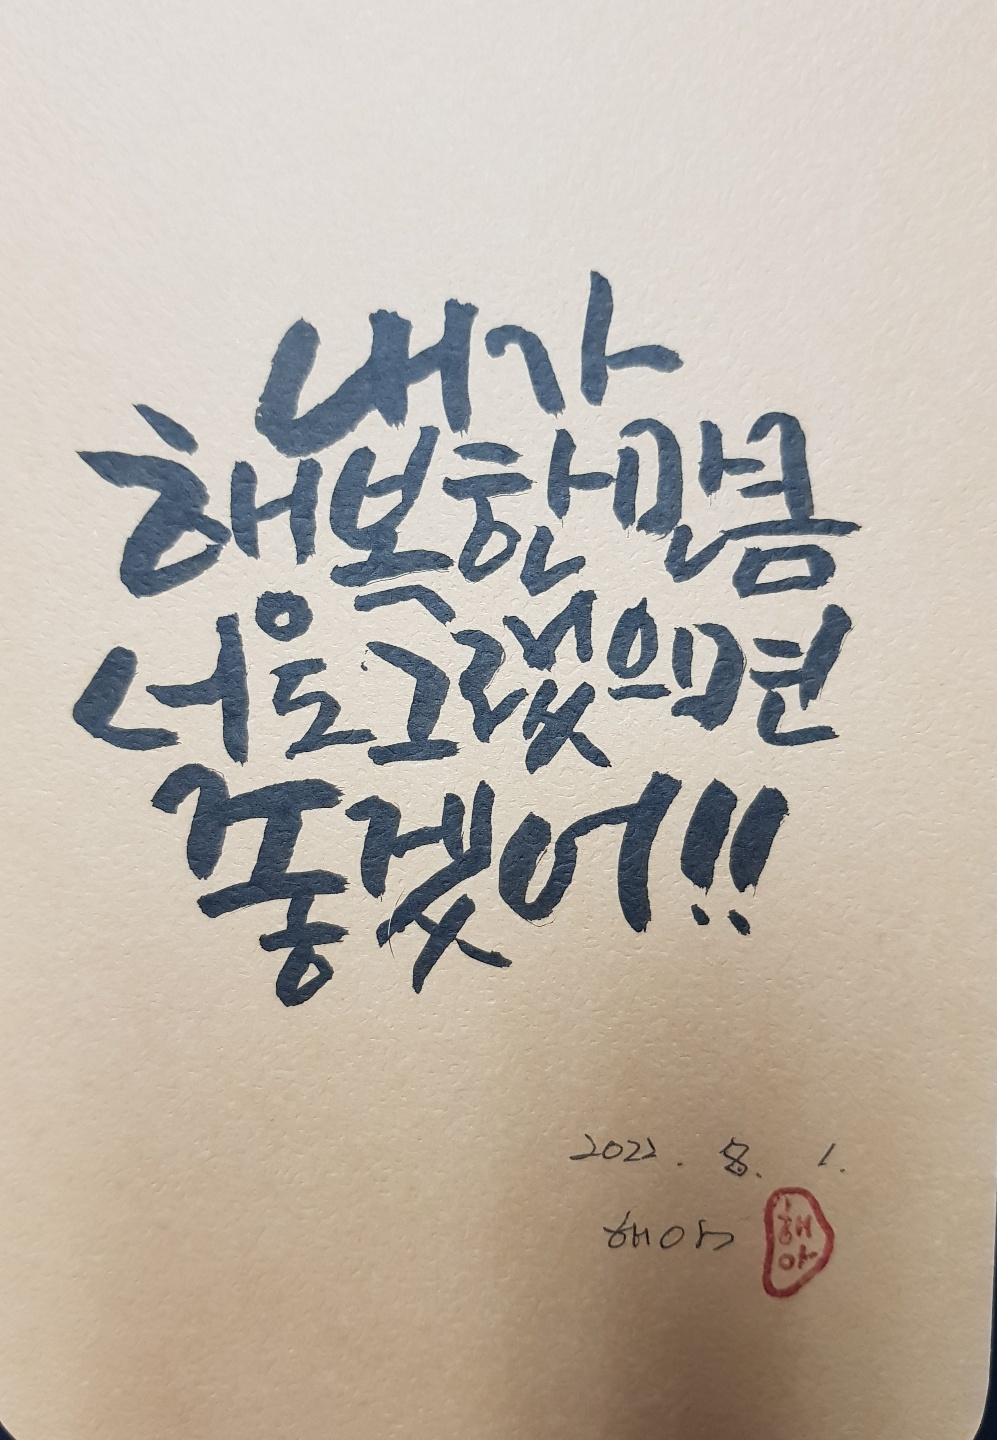 내가
행복한만큼
너도그랬으면
좋겠어!!
2022. 8. 1.
해아
해아